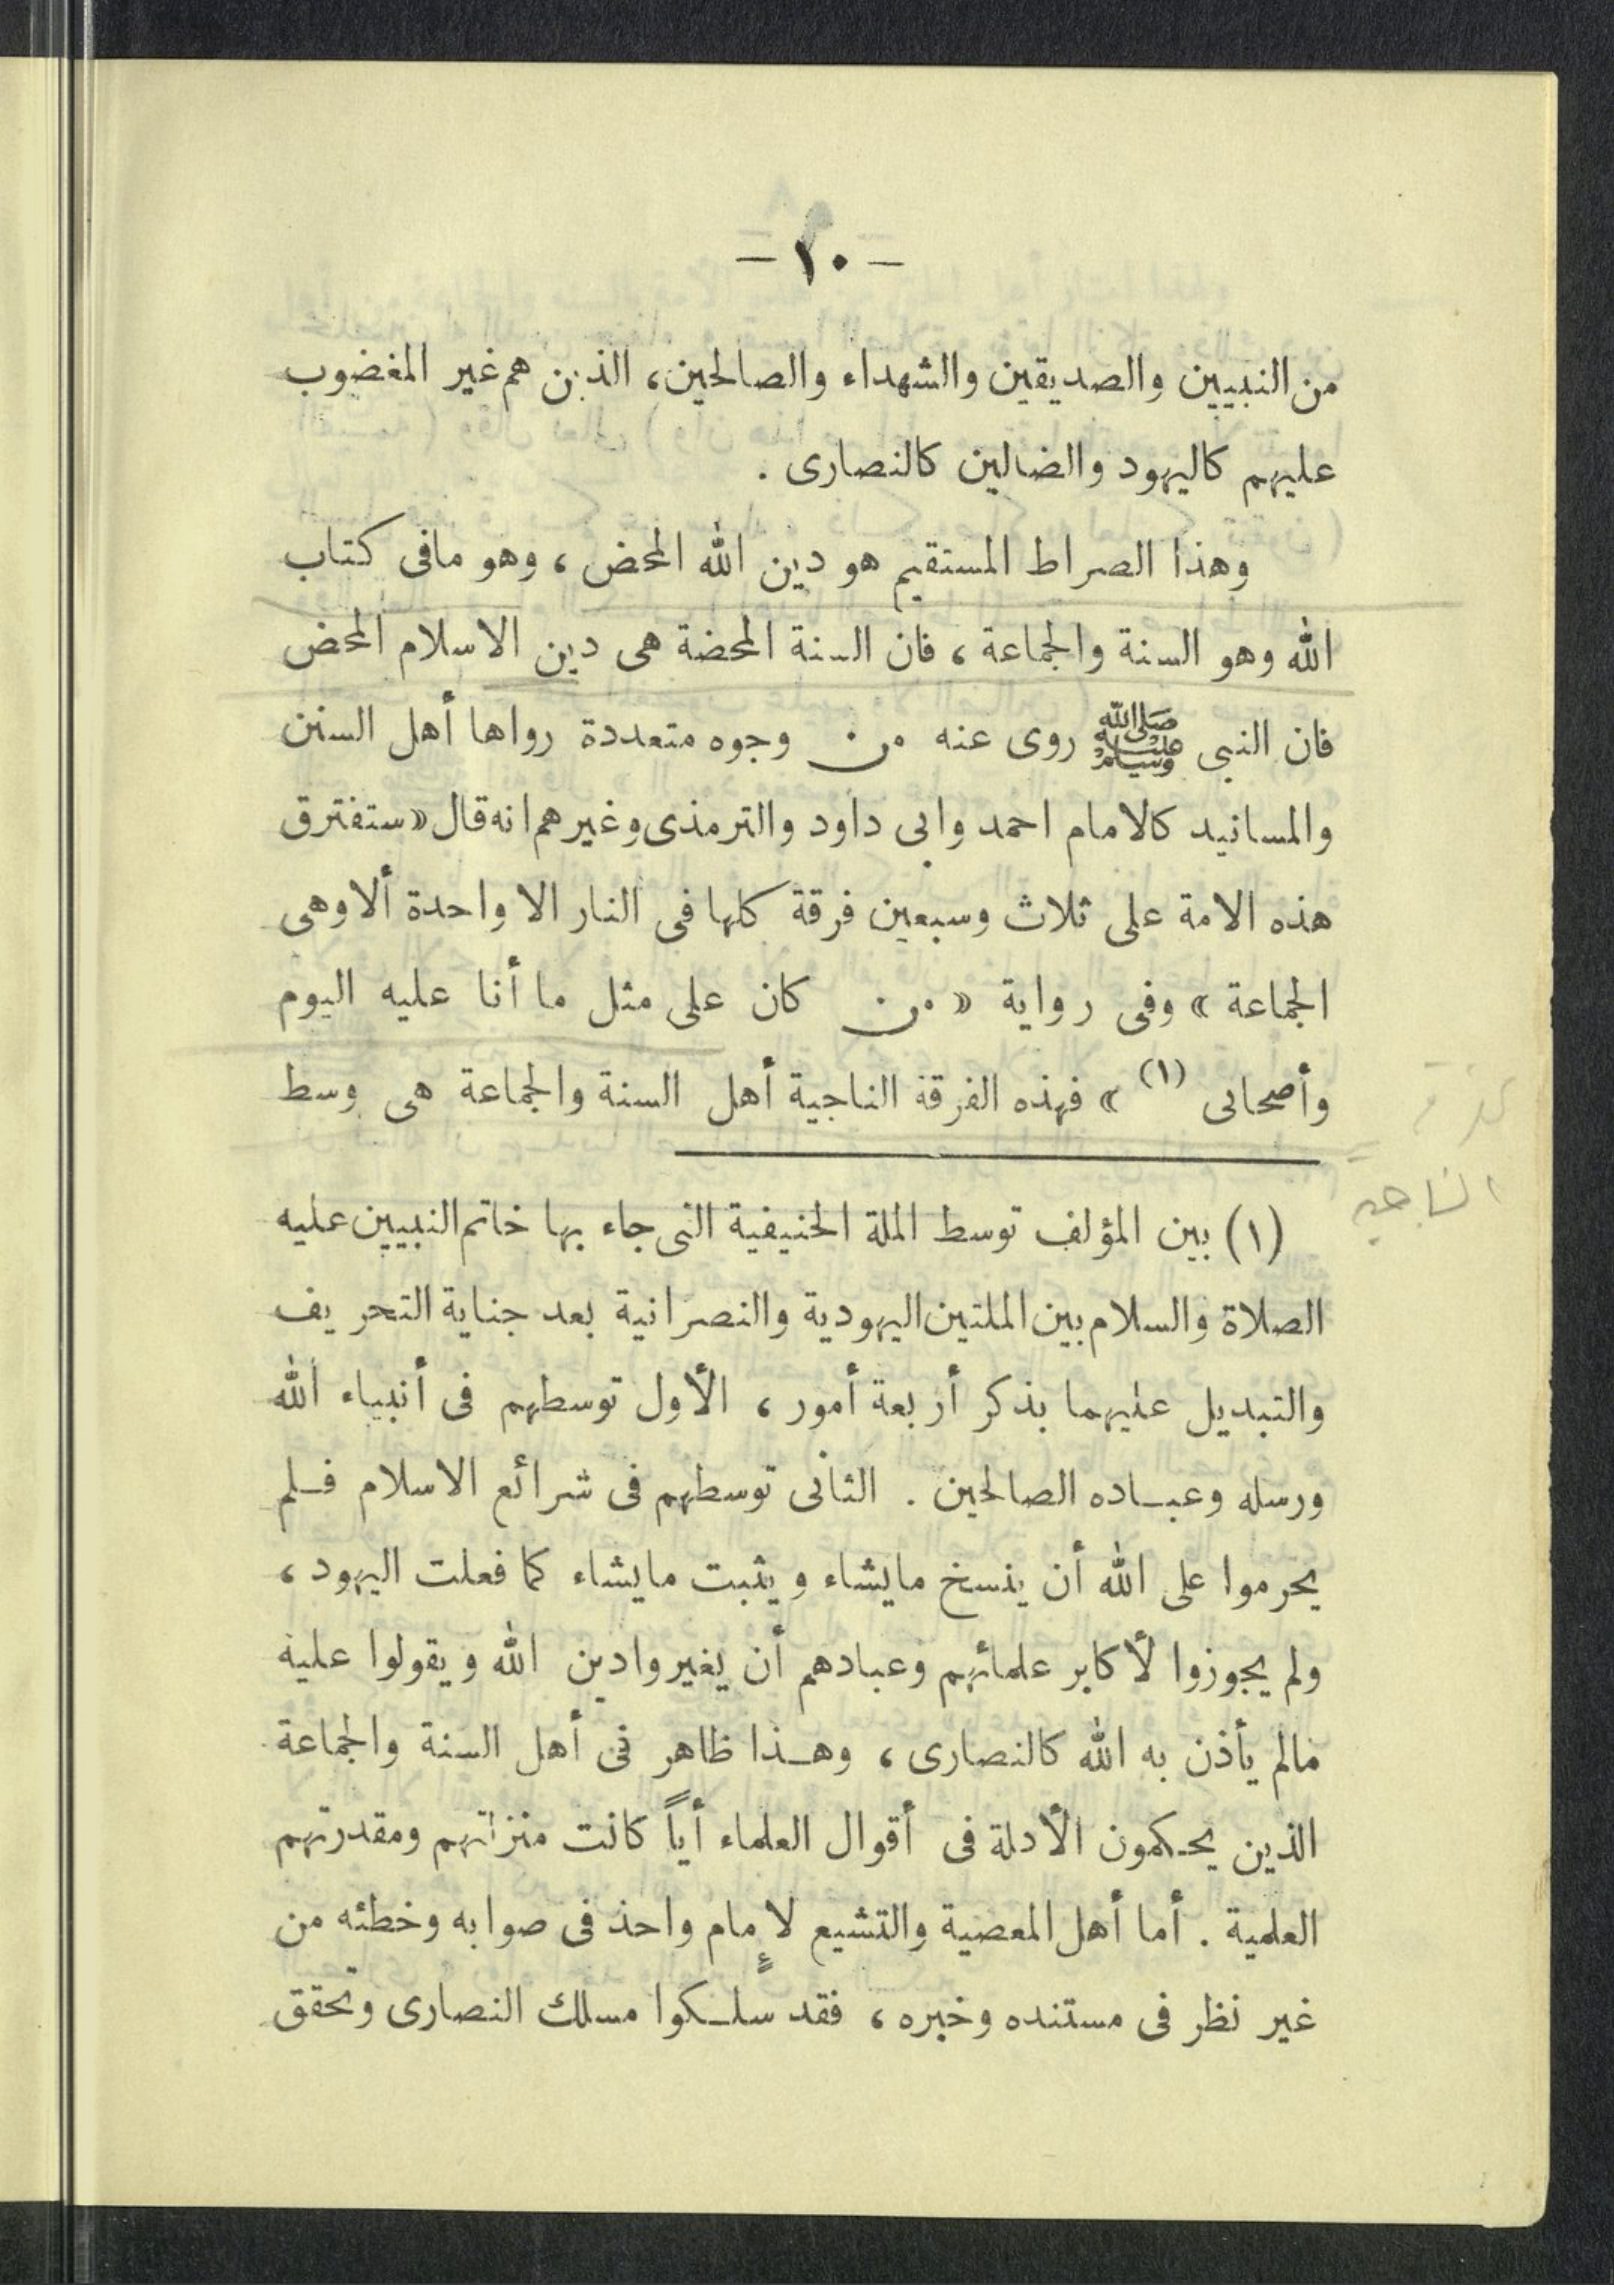 - ١٠ -
من النبيين والصديقين والشهداء والصالحين، الذين هم غير المغضوب
عليهم كاليهود والضالين كالنصارى .
وهذا الصراط المستقيم هو دين الله المحض ، وهو مافى كتاب
الله وهو السنة والجماعة ، فان السنة المحضة هى دين الاسلام المحض
فان النبى ﷺ روى عنه من وجوه متعددة رواها أهل السنن
والمسانيد كالامام احمد وابى داود والترمذى وغيرهم انه قال «ستفترق
هذه الامة على ثلاث وسبعين فرقة كلها فى النار الا واحدة ألا وهى
الجماعة » وفى رواية « من كان على مثل ما أنا عليه اليوم
وأصحابى (١) » فهذه الفرقة الناجية أهل السنة والجماعة هى وسط
الناجيه
(١) بين المؤلف توسط الملة الحنيفية التى جاء بها خاتم النبيين عليه
الصلاة والسلام بين الملتين اليهودية والنصرانية بعد جناية التحريف
والتبديل عليهما بذكر أربعة أمور ، الأول توسطهم فى أنبياء الله
ورسله وعباده الصالحين . الثانى توسطهم فى شرائع الاسلام فلم
يحرموا على الله أن ينسخ مايشاء ويثبت مايشاء كما فعلت اليهود ،
ولم يجوزوا لأكابر علمائهم وعبادهم أن يغيروا دين الله ويقولوا عليه
مالم يأذن به الله كالنصارى ، وهذا ظاهر فى أهل السنة والجماعة
الذين يحكمون الأدلة فى أقوال العلماء أياً كانت منزلتهم ومقدرتهم
العلمية . أما أهل المعصية والتشيع لإمام واحد فى صوابه وخطئه من
غير نظر فى مستنده وخبره ، فقد سلكوا مسلك النصارى وتحقق